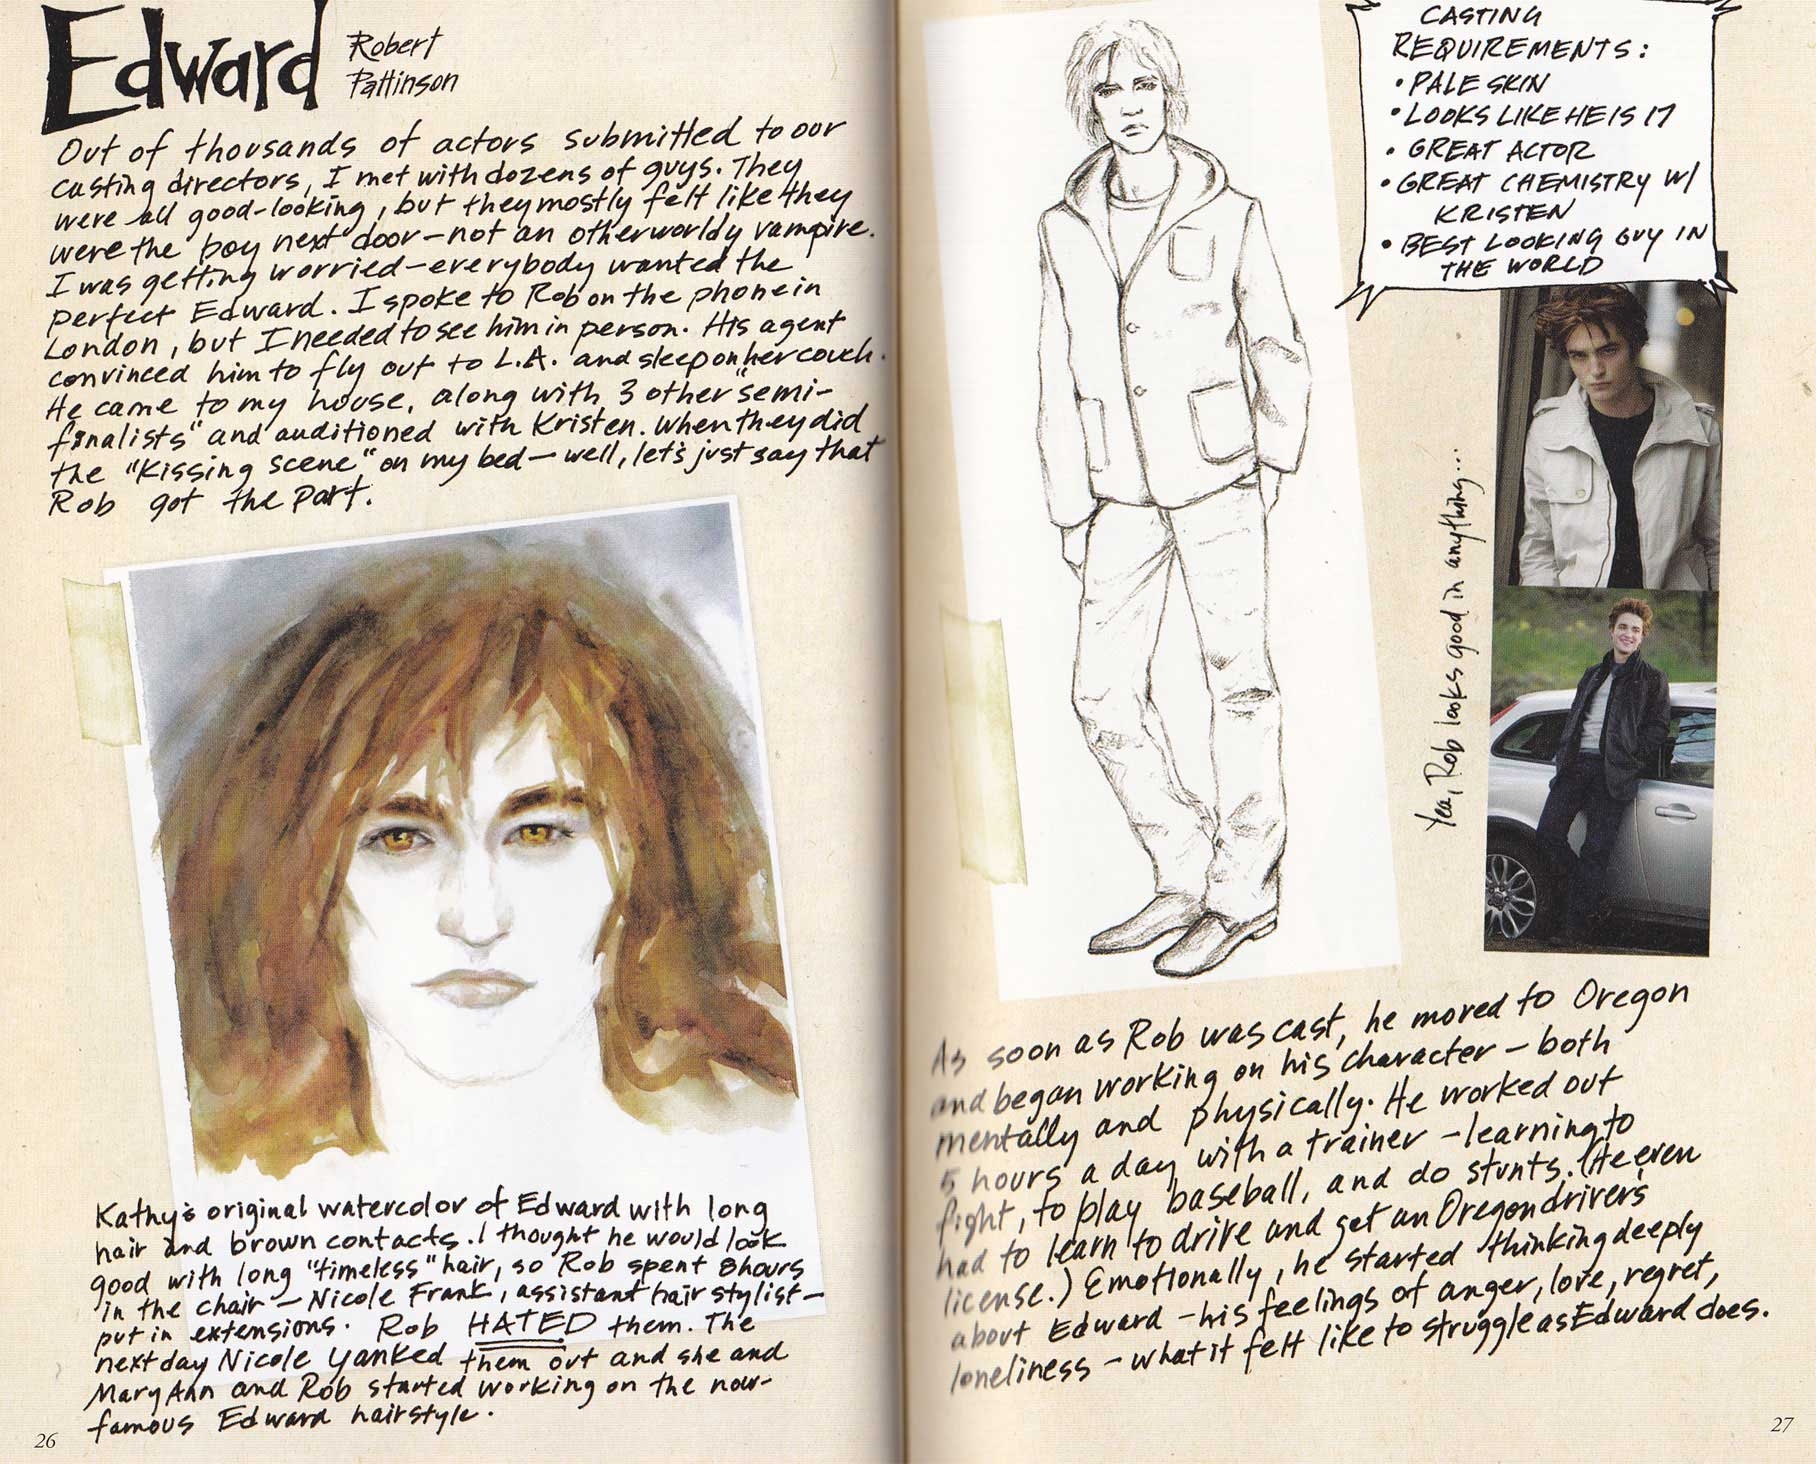 Edward
Robert
Pattinson
Out of thousands of actors submitted to our
casting directors, I met with dozens of guys. They
were all good-looking, but they mostly felt like they
were the boy next door—not an otherworldy vampire.
I was getting worried—everybody wanted the
perfect Edward. I spoke to Rob on the phone in
London, but I needed to see him in person. His agent
convinced him to fly out to L.A. and sleep on her couch.
He came to my house, along with 3 other "semi-
finalists" and auditioned with Kristen. When they did
the "Kissing scene" on my bed—well, let's just say that
Rob got the part.
Kathy's original watercolor of Edward with long
hair and brown contacts. I thought he would look
good with long "timeless" hair, so Rob spent 8 hours
in the chair—Nicole Frank, assistant hair stylist—
put in extensions. Rob HATED them. The
next day Nicole yanked them out and she and
Mary Ann and Rob started working on the now-
famous Edward hairstyle.
26
CASTING
REQUIREMENTS:
• PALE SKIN
• LOOKS LIKE HE IS 17
• GREAT ACTOR
• GREAT CHEMISTRY W/
KRISTEN
• BEST LOOKING GUY IN
THE WORLD
Yea, Rob looks good in anything...
As soon as Rob was cast, he moved to Oregon
and began working on his character—both
mentally and physically. He worked out
5 hours a day with a trainer—learning to
fight, to play baseball, and do stunts. (He even
had to learn to drive and get an Oregon driver's
license.) Emotionally, he started thinking deeply
about Edward—his feelings of anger, love, regret,
loneliness—what it felt like to struggle as Edward does.
27